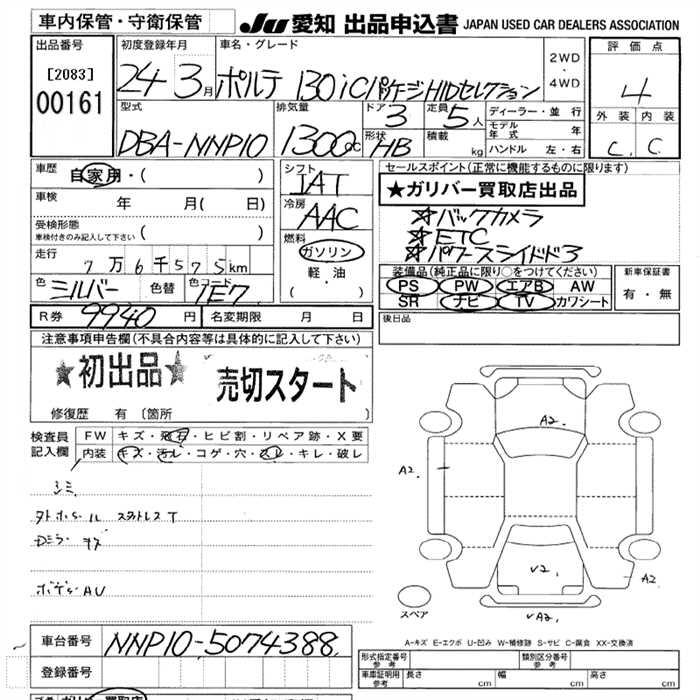 車内保管・守衛保管
JU 愛知 出品申込書 JAPAN USED CAR DEALERS ASSOCIATION
出品番号
[2083]
00161
初度登録年月
24 3月
車名・グレード
ポルテ 130i Cパッケージ HIDセレクション
2WD
・
4WD
評価点
4
型式
DBA-NNP10
排気量
1300cc
ドア
3
形状
HB
定員
5人
積載
kg
ディーラー・並行
モデル年式 年
ハンドル 左・右
外装 内装
C C
車歴
自家用・( )
車検
年 月( 日)
受検形態
車検付きのみ記入して下さい ( )
走行
7万6千575km
色 シルバー 色替 色コード 1E7
シフト
IAT
冷房
AAC
燃料
ガソリン
・
軽油
・
( )
セールスポイント(正常に機能するものに限ります)
★ガリバー買取店出品
☆バックカメラ
☆ETC
☆パワースライドドア
装備品(純正品に限り○をつけてください)
PS PW エアB AW
SR ナビ TV カワシート
新車保証書
有・無
R券 9940円 名変期限 月 日
後日品
注意事項申告欄(不具合内容等は具体的に記入して下さい)
★初出品★
売切スタート
修復歴 有 [箇所
検査員
記入欄
FW キズ・飛石・ヒビ割・リペア跡・X要
内装 キズ・汚レ・コゲ・穴・スレ・キレ・破レ
シミ
タトホイール スタトレスT
Dミラー キズ
ボデーAU
A2
A2
A2
V2
VA2
スペア
A-キズ E-エクボ U-凹み W-補修跡 S-サビ C-腐食 XX-交換済
車台番号
NNP10-5074388
登録番号
形式指定番号
参考
類別区分番号
参考
車庫証明用
参考
長さ
幅
高さ
cm
cm
cm